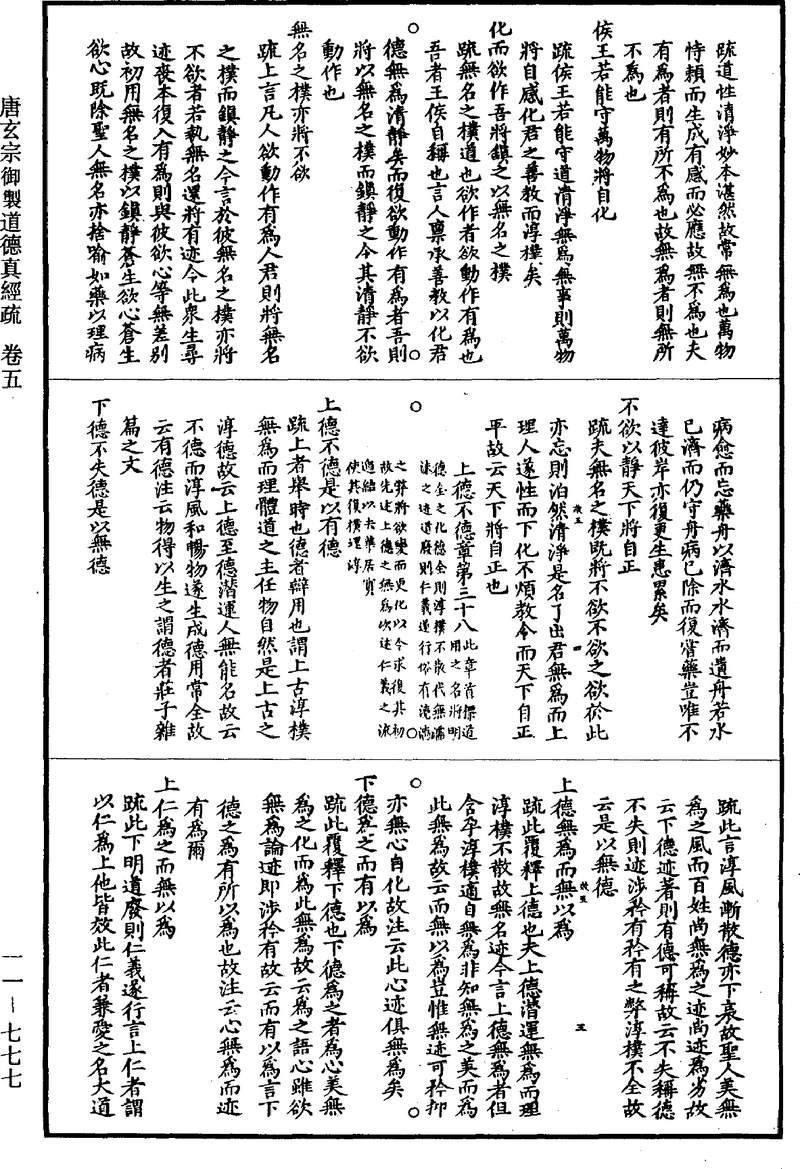 疏道性清淨妙本湛然故常無為也萬物
恃賴而生成有感而必應故無不為也夫
有為者則有所不為也故無為者則無所
不為也
侯王若能守萬物將自化
疏侯王若能守道清淨無為無事則萬物
將自感化君之善教而淳樸矣
化而欲作吾將鎮之以無名之樸
疏無名之樸道也欲作者欲動作有為也
吾者王侯自稱也言人稟承善教以化君
德無為清靜矣而復欲動作有為者吾則
將以無名之樸而鎮靜之令其清靜不欲
動作也
無名之樸亦將不欲
疏上言凡人欲動作有為人君則將無名
之樸而鎮靜之今言於彼無名之樸亦將
不欲者若執無名還將有迹令此衆生尋
迹喪本復入有為則與彼欲心等無差別
故初用無名之樸以鎮靜蒼生欲心蒼生
欲心既除聖人無名亦捨喻如藥以理病
病愈而忘藥舟以濟水水濟而遺舟若水
已濟而仍守舟病已除而復嘗藥豈唯不
達彼岸亦復更生患累矣
不欲以靜天下將自正
疏夫無名之樸既將不欲不欲之欲於此
亦忘則泊然清淨是名了出君無為而上
理人遂性而下化不煩教令而天下自正
平故云天下將自正也
上德不德章第三十八此章首標道
用之名將明
德全之化德全則淳樸不散代無濡
沫之迹道廢則仁義遂行俗有澆漓
之弊將欲變而更化以今求復非初
故先述上德之無為次述仁義之流
遁結以去華居實
使其復樸還淳
上德不德是以有德
疏上者舉時也德者辯用也謂上古淳樸
無為而理體道之主任物自然是上古之
淳德故云上德至德潛運人無能名故云
不德而淳風和暢物遂生成德用常全故
云有德注云物得以生之謂德者莊子雜
篇之文
下德不失德是以無德
疏此言淳風漸散德亦下衰故聖人美無
為之風而百姓尚無為之迹尚迹為劣故
云下德迹著則有德可稱故云不失稱德
不失則迹涉矜有矜有之弊淳樸不全故
云是以無德
上德無為而無以為
疏此覆釋上德也夫上德潛運無為而理
淳樸不散故無名迹今言上德無為者但
含孕淳樸適自無為非知無為之美而為
此無為故云而無以為豈惟無迹可矜抑
亦無心自化故注云此心迹俱無為矣
下德為之而有以為
疏此覆釋下德也下德為之者為心美無
為之化而為此無為故云為之語心雖欲
無為論迹即涉矜有故云而有以為言下
德之為有所以為也故注云心無為而迹
有為爾
上仁為之而無以為
疏此下明道廢則仁義遂行言上仁者謂
以仁為上他皆效此仁者兼愛之名大道
唐玄宗御製道德真經疏 卷五
一一—七七七